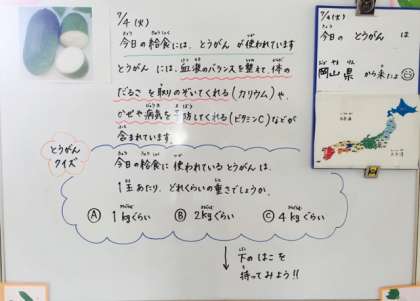 7/4(火)
今日の給食には、とうがんが使われています
とうがんには、血液のバランスを整えて、体の
だるさを取りのぞいてくれる(カリウム)や、
かぜや病気を予防してくれる(ビタミンC)などが
含まれています。
とうがん
クイズ
今日の給食に使われているとうがんは、
1玉あたり、どれくらいの重さでしょうか。
Ⓐ 1kgぐらい Ⓑ 2kgぐらい Ⓒ 4kgぐらい
↓ 下のはこを
持ってみよう!!
7/4(火)
今日のとうがんは
岡山県から来たよ